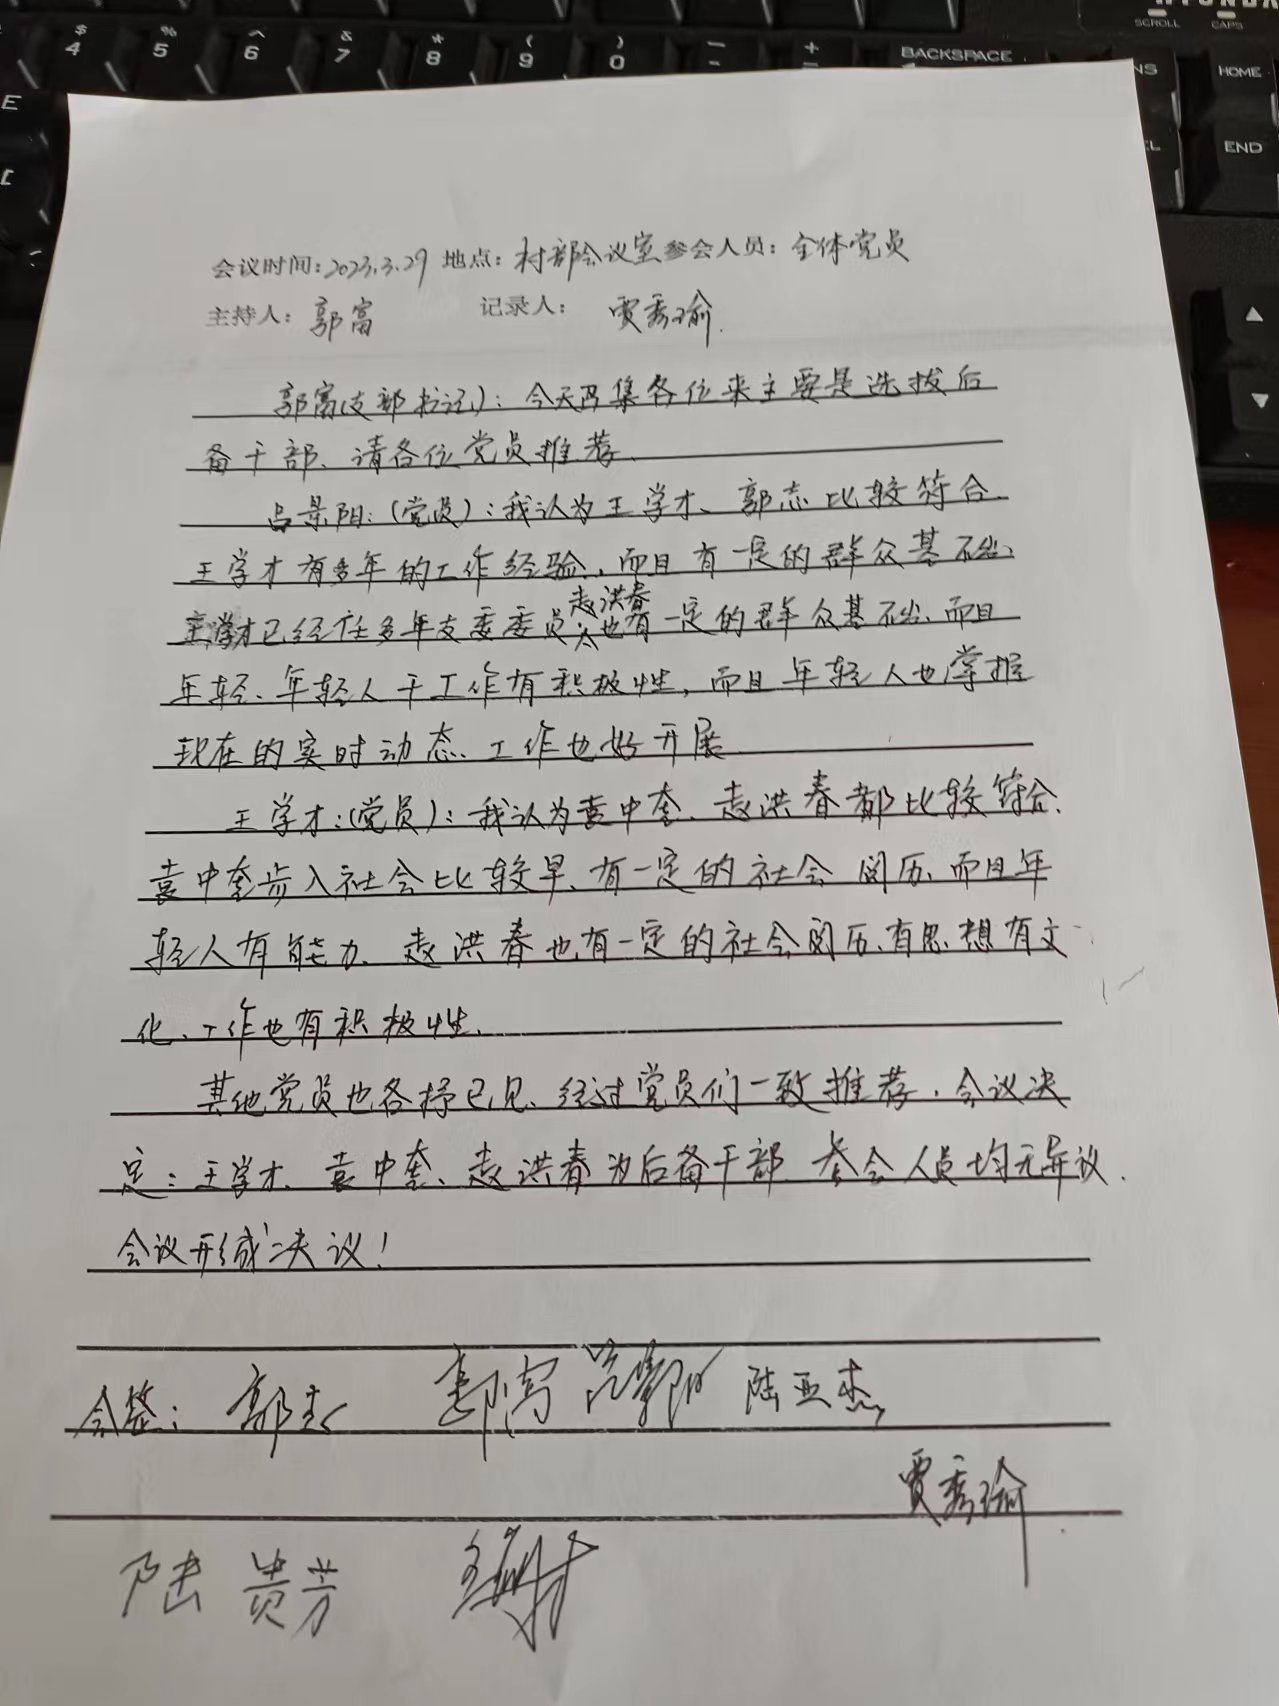 $ 4 % 5 ^ 6 & 7 * 8 ( 9 ) 0 — - + = BACKSPACE
SCROLL CAPS
INS HOME
END
E
会议时间:2023.3.29 地点:村部会议室 参会人员:全体党员
主持人:郭富 记录人: 贾秀瑜
郭富(支部书记):今天召集各位来主要是选拔后
备干部、请各位党员推荐
吕景阳:(党员):我认为王学才、郭志比较符合.
王学才有多年的工作经验,而且有一定的群众基础、
王学才已经任多年支委委员赵洪春也有一定的群众基础、而且
年轻、年轻人干工作有积极性,而且年轻人也掌握
现在的实时动态、工作也好开展
王学才:(党员):我认为袁中奎、赵洪春都比较符合.
袁中奎步入社会比较早、有一定的社会阅历、而且年
轻人有能力、赵洪春也有一定的社会阅历、有思想有文
化、工作也有积极性.
其他党员也各抒已见、经过党员们一致推荐.会议决
定:王学才、袁中奎、赵洪春为后备干部.参会人员均无异议.
会议形成决议!
会签: 郭志 郭富 陆亚杰
贾秀瑜
陆贵芳 王学才